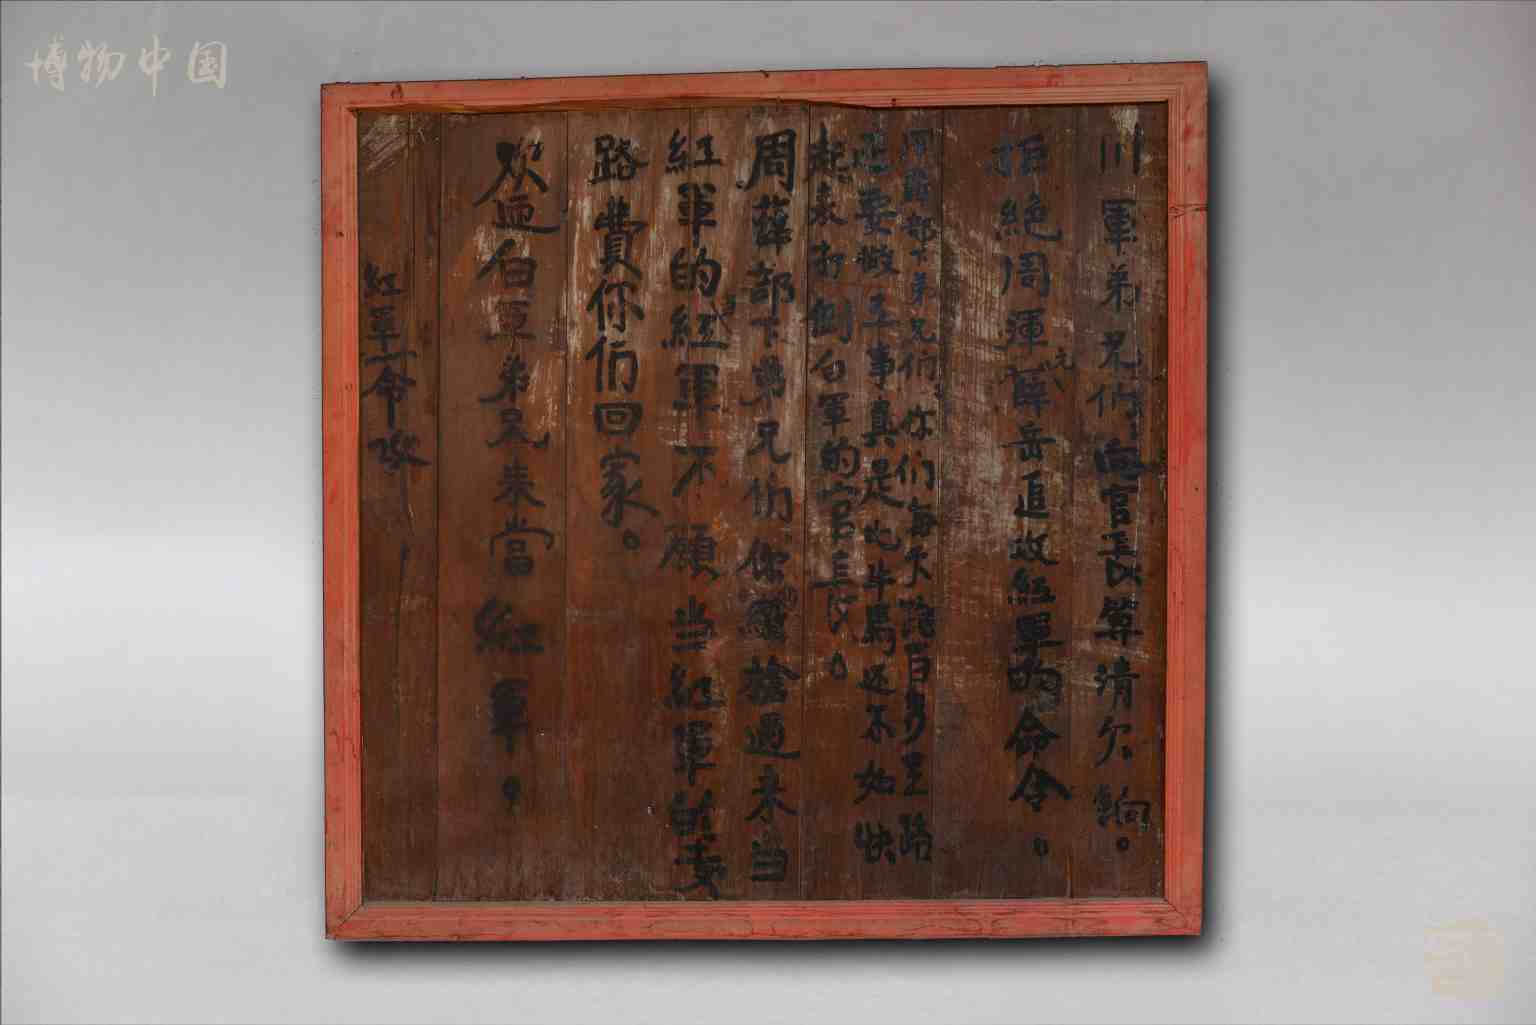 博物中国
川軍弟兄们，向官長以算清欠餉。
拒絶周渾元、薛岳追攻紅軍的命令。
周薛部下弟兄们，你们每天跑百多里路
还要做工事真是比牛馬还不如快
起来打倒白軍的官長。
周薛部下弟兄们你们繳槍过来当
紅軍的当紅軍不願当紅軍的发
路費你们回家。
欢迎白軍弟兄来當紅軍。
紅軍